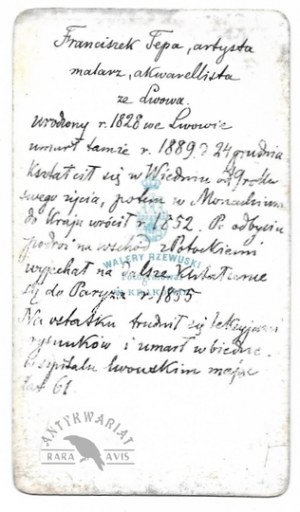 Franciszek Tepa, artysta
malarz, akwarellista
ze Lwowa.
urodzony r. 1828 we Lwowie
umarł tamże r. 1889 24 grudnia
Kształcił się w Wiedniu od 19 roku
swego życia, potem w Monachium
do kraju wrócił r. 1852. Po odbyciu
podróż na wschód z Potockiemi
WALERY RZEWUSKI
wyjechał na dalsze kształcenie
W KRAKOWIE
się do Paryża r. 1855
Na ostatku trudnił się lekcyjami
rysunków i umarł w biednie.
szpitalu lwowskim mając
lat 61.
ANTYKWARIAT
RARA AVIS